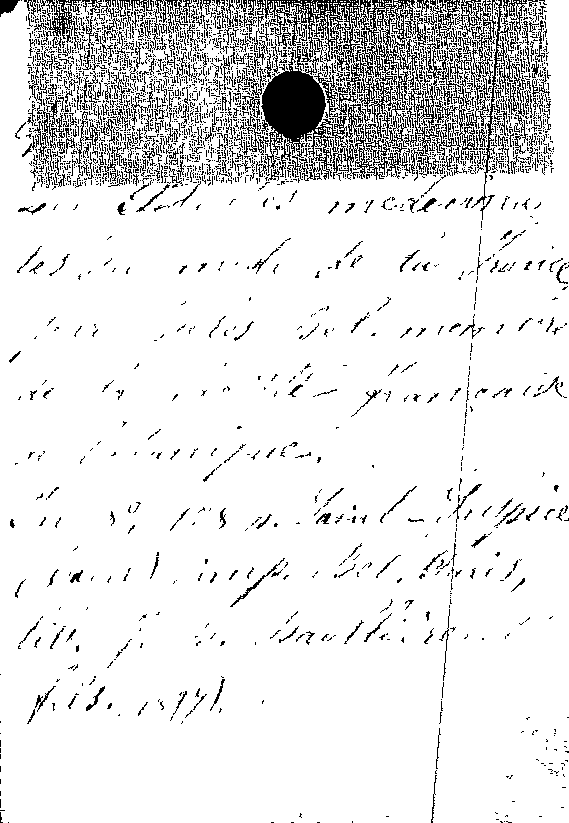 médicina
les du midi de la France
par Jules Bel. membre
de la société française
de botanique.
In 8°, 108 p. Saint-Sulpice
(Tarn) imp. Bel. Paris,
lib. J. B. Baillière et
fils.